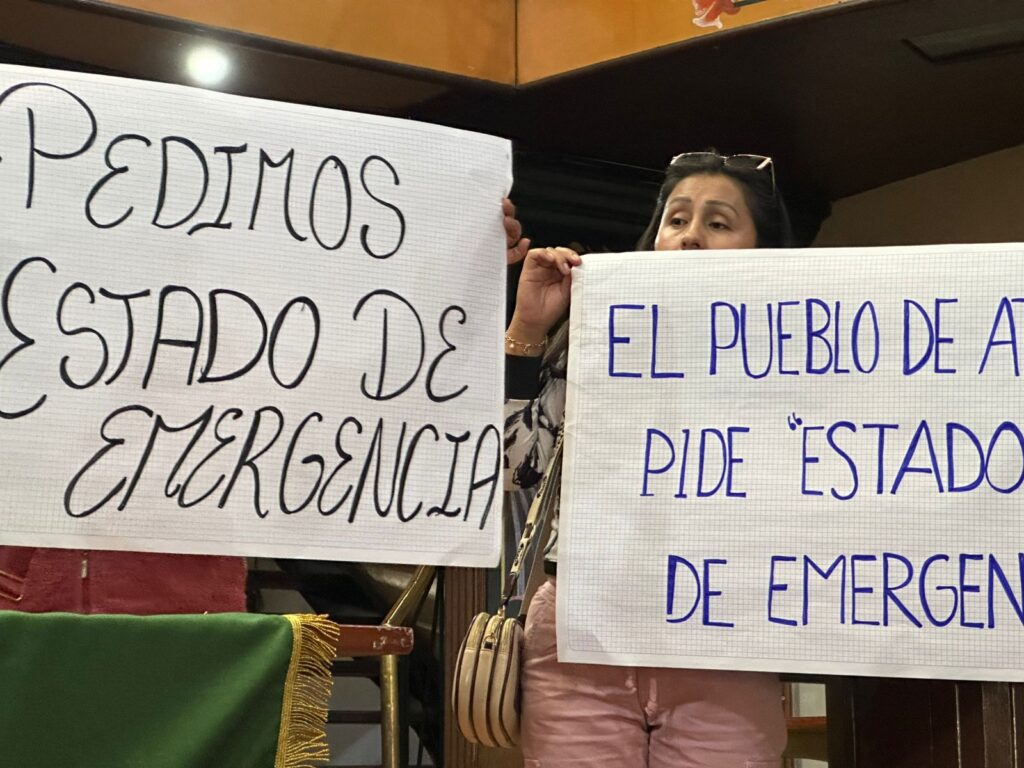 PEDIMOS
ESTADO DE
EMERGENCIA
EL PUEBLO DE
PIDE "ESTADO
DE